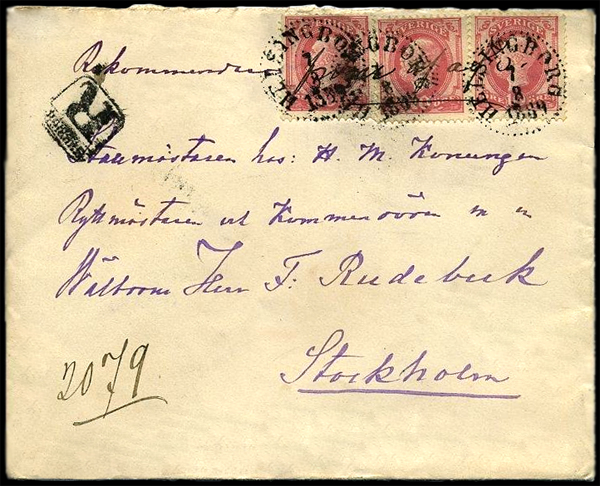 SVERIGE SVERIGE SVERIGE
HELSINGBORG HELSINGBORG HELSINGBORG
1 8 1889
Rekommenderas
R
Stallmästaren hos: H. M. Konungen
Ryttmästaren och Kommendören m m
Wälborne Herr F: Rudebeck
Stockholm
2079